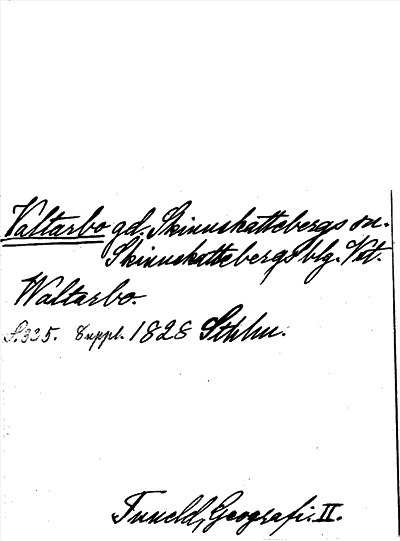 Valtarbo gd. Skinnskattebergs sn.
Skinnskattebergs blg. Vst.
Waltarbo.
S.335. Suppl. 1828 Sthlm.
Tuneld, Geografi. II.